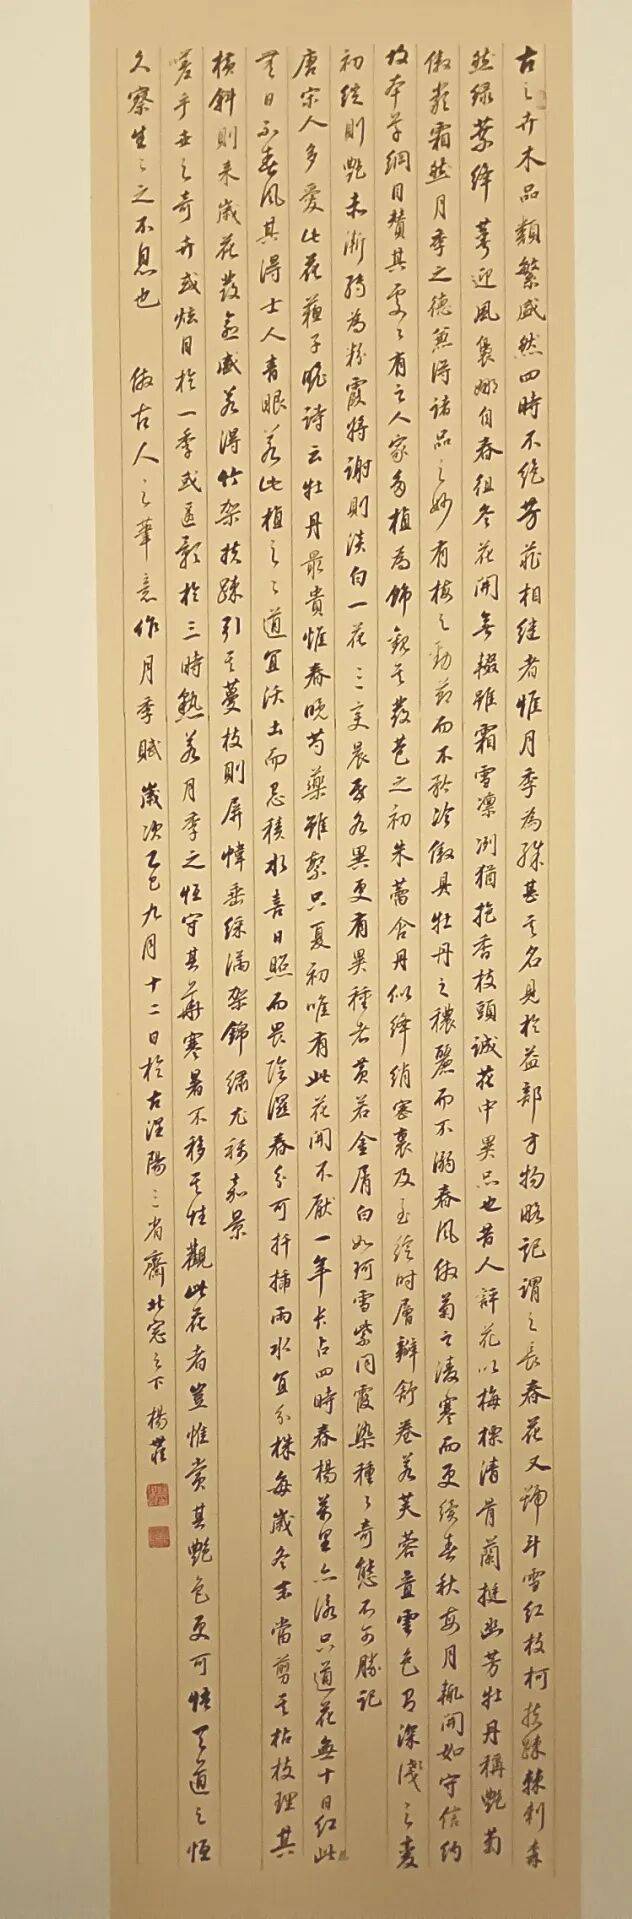 古之卉木品類繁盛然四時不絶芳菲相继者惟月季為殊甚其名見於益部方物略記謂之長春花又號斗雪红枝柯扶踈棘刺森
然绿葉绛萼迎風裊娜自春徂冬花開無輟雖霜雪凛冽猶抱香枝頭誠花中異品也昔人評花以梅標清骨蘭挺幽芳牡丹稱艷菊
傲嚴霜然月季之德兼得諸品之妙有梅之勁節而不矜冷傲具牡丹之穠麗而不溺春風傲菊之凌寒而更续春秋每月輒開如守信约
故本草綱目贊其處處有之人家多植為飾觀其發苞之初朱蕾含丹似绛绡密裹及至绽时層瓣舒卷若芙蓉疊雲色有深淺之变
初绽則艷朱漸转為粉霞将謝則淡白一花三变晨昏各異更有異種者黄若金屑白如珂雪紫同霞染種種奇態不可勝记
唐宋人多愛此花蘇子瞻詩云牡丹最貴惟春晚芍藥雖繁只夏初唯有此花開不厭一年长占四時春楊萬里亦詠只道花無十日红此
花無日不春風其得士人青眼若此植之之道宜沃土而忌積水喜日照而畏陰濕春分可扦插雨水宜分株每歲冬末當剪其枯枝理其
横斜則来歲花發愈盛若得竹架扶踈引其蔓枝則屏幃垂綵满架錦绣尤称嘉景
嗟乎世之奇卉或炫目於一季或匿影於三時熟若月季之恒守其華寒暑不移其性觀此花者豈惟赏其艷色更可悟天道之恒
久察生生之不息也 倣古人之筆意作月季賦歲次乙巳九月十二日於古涇陽三省齋北窓之下楊